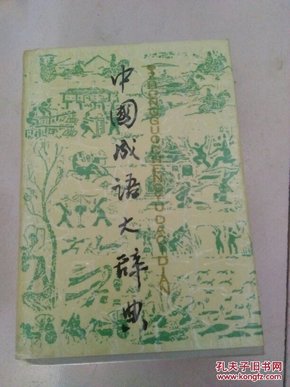 中國成语大辞典
ZHONGGUO CHENGYU DA CIDIAN
孔夫子旧书网
www.kongfz.com